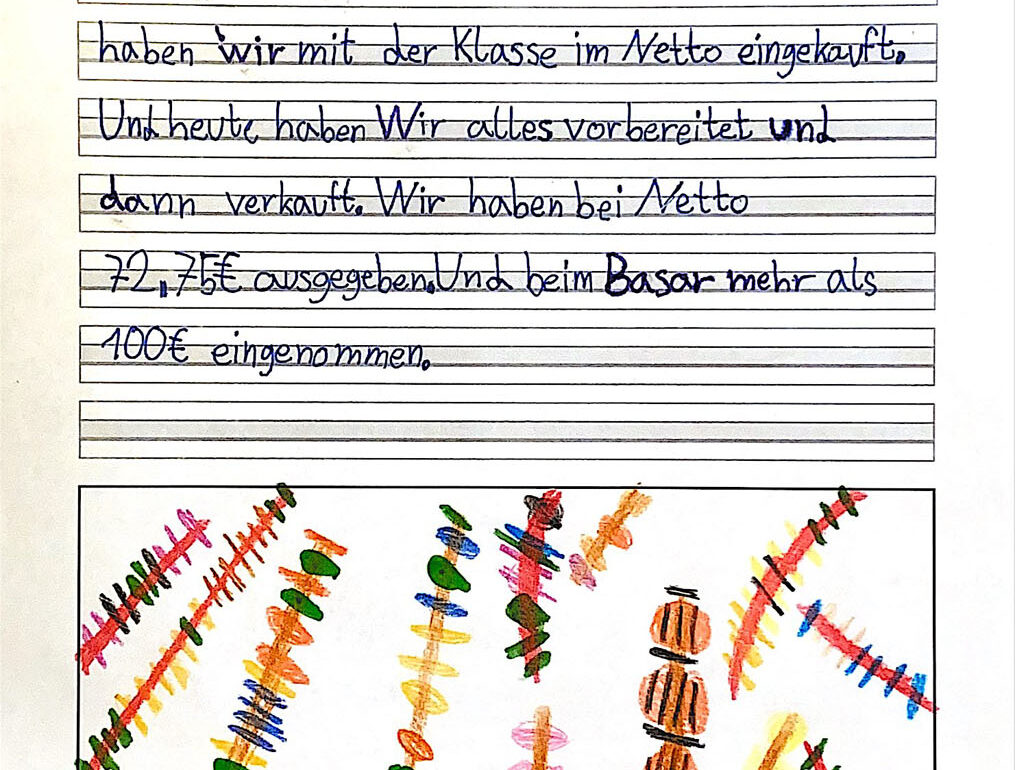 haben wir mit der Klasse im Netto eingekauft.
Und heute haben Wir alles vorbereitet und
dann verkauft. Wir haben bei Netto
72,75€ ausgegeben. Und beim Basar mehr als
100€ eingenommen.